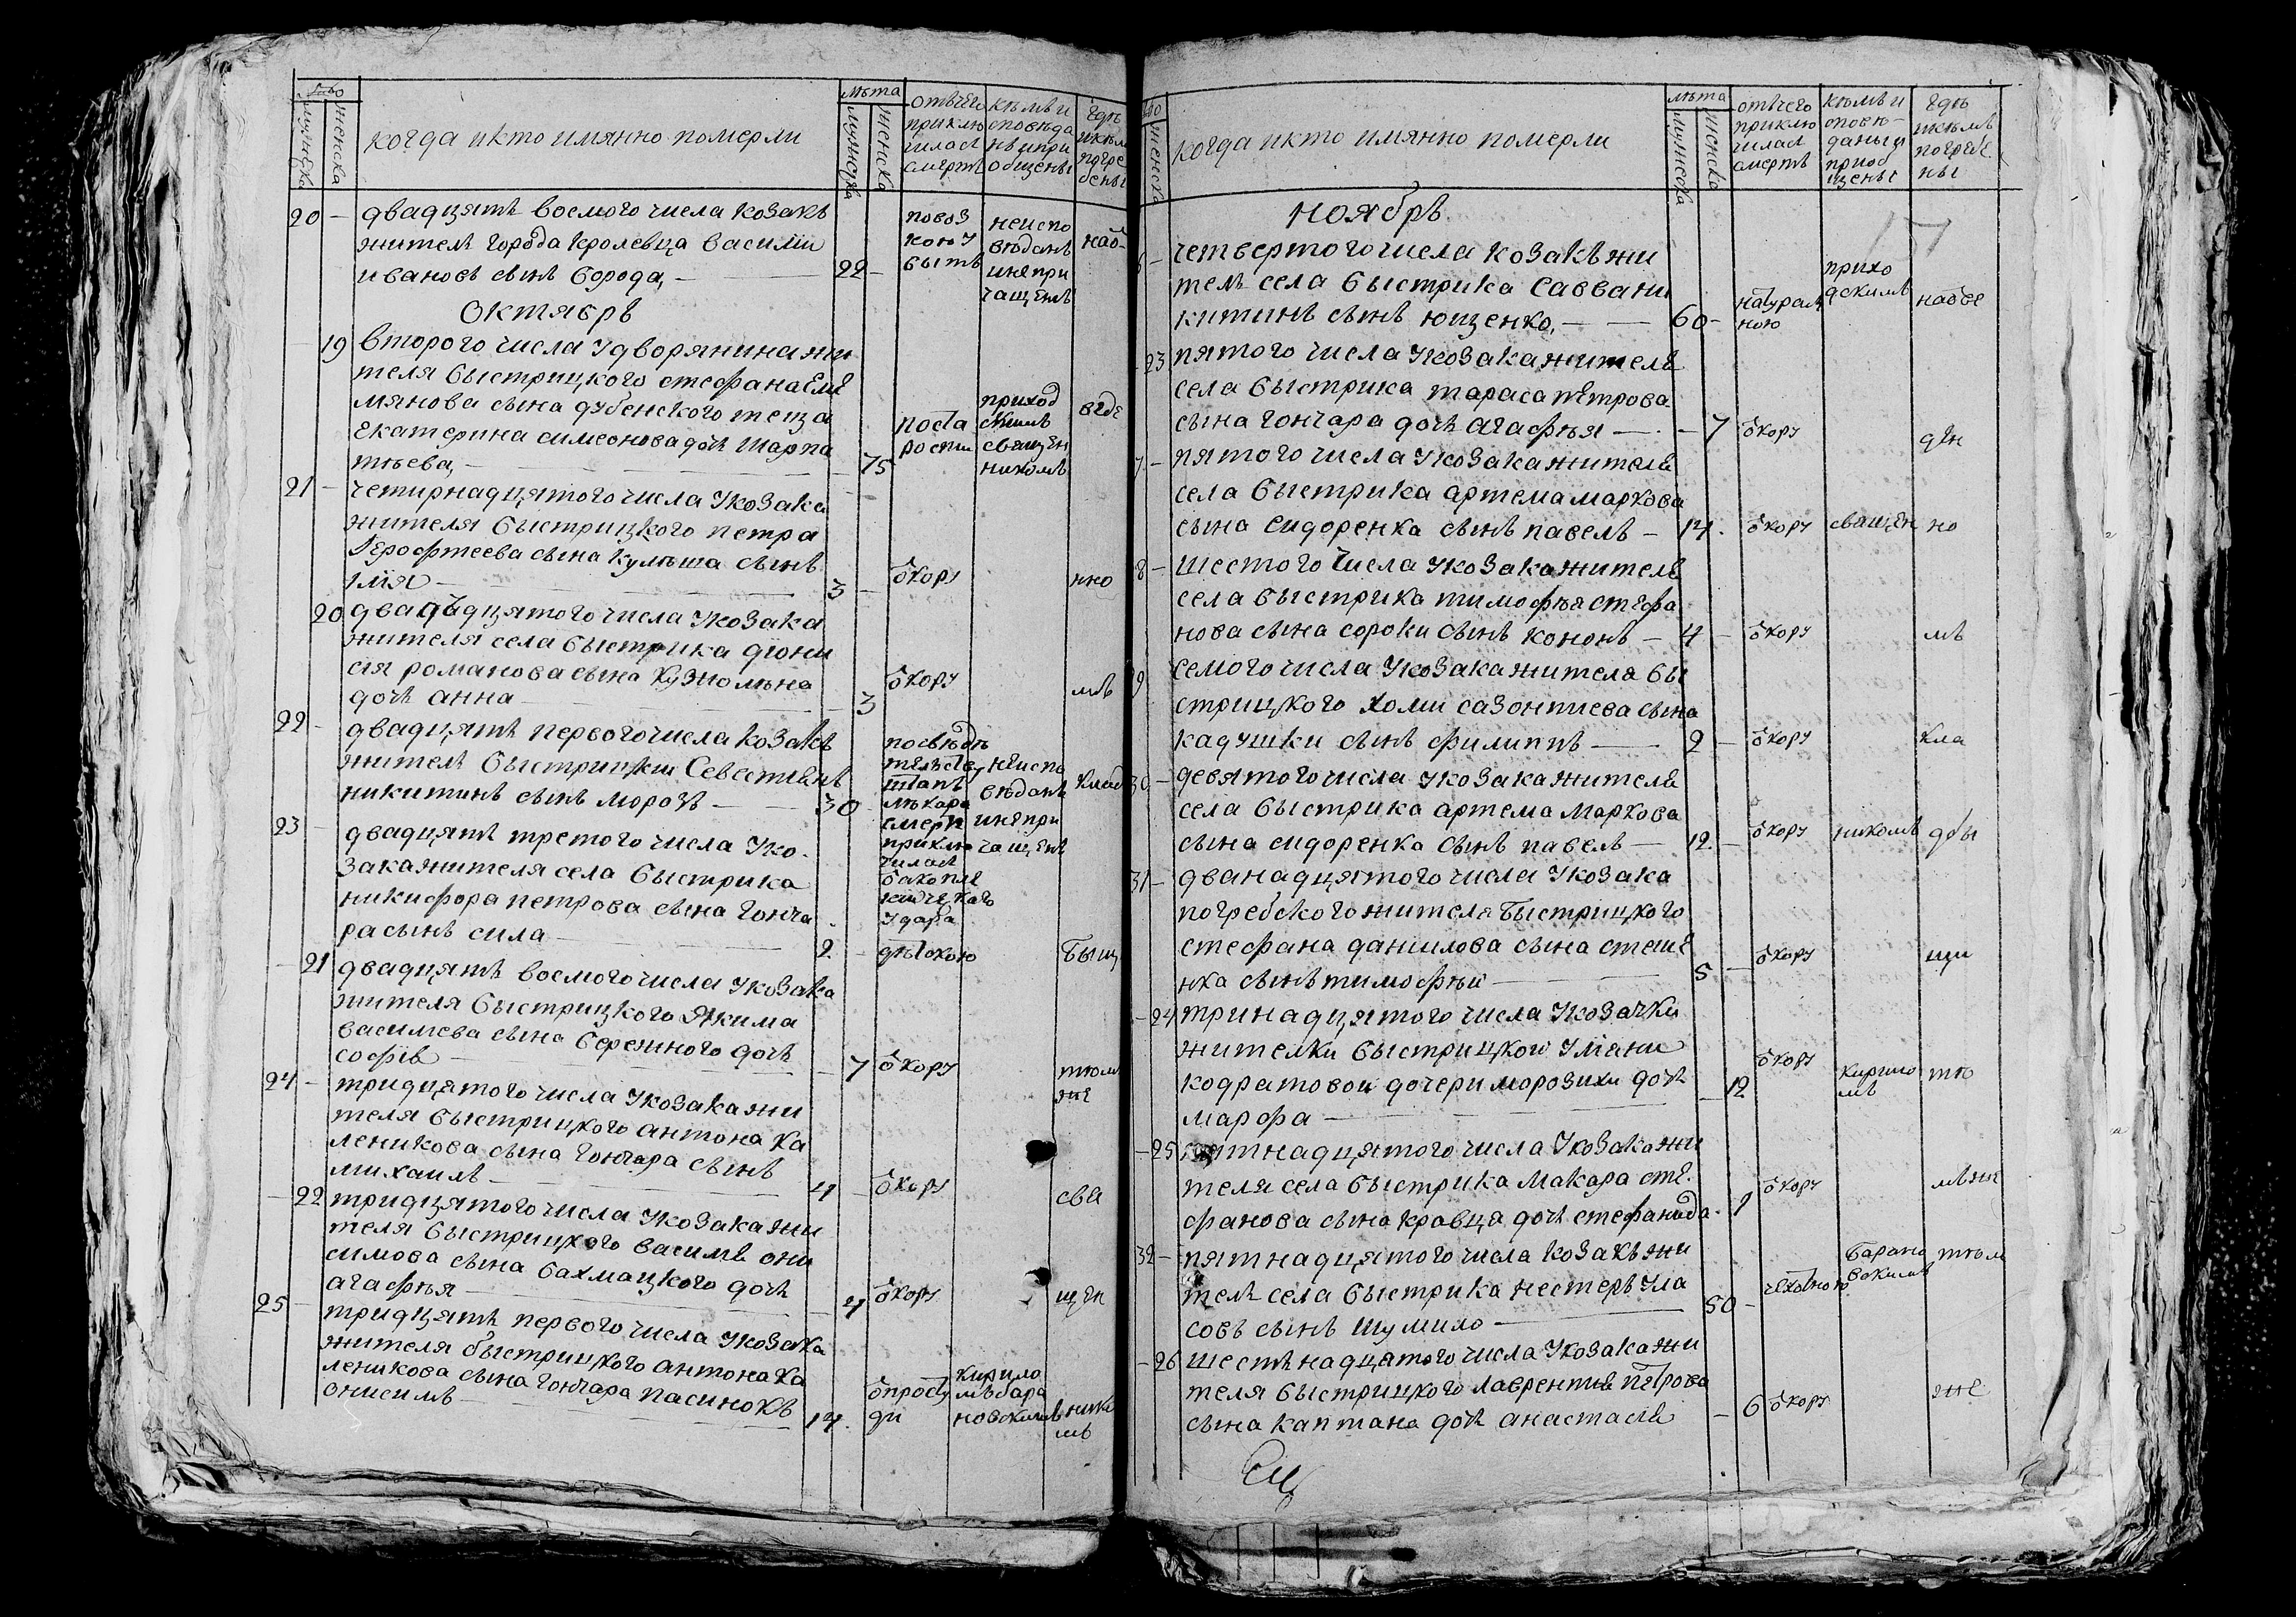 мужеска
женска
когда и кто имянно померли
лѣта
мужеска
женска
отъ чего приклю чилась смерть
кѣмъ и споведа нъ и при общены
гдѣ и кѣмъ погре бены
20 - двадцять восмого числа козакъ
житель города кролевца василій
ивановъ сынъ борода, - 22 -
повоз кою убитъ
неиспо вѣданъ и не при чащенъ
на об-
октябрь
19 второго числа у дворянина жи
теля быстрицкого стефана еме
мянова сына дубенского теща
екатерина симеонова дочь шарпа
тѣева, - 75
по ста рости
приход скимъ священ никомъ
21 - четирнадцятого числа у козака
жителя быстрицкого петра
ерофтеева сына кулѣша сынъ
илія - 3 -
ѿ кору
нно
20 двадъдцятого числа у козака
жителя села быстрика діони
сія романова сына
дочь анна - 3
ѿ кору
мъ
22 - двадцять первого числа козакъ
житель быстрицкій севестіянъ
никитинъ сынъ морозъ - 30
по свѣдѣ телству штапъ лѣкара смерть приклю чилась
удара
неиспо вѣданъ и не при чащенъ
клад
23 - двадцять третого числа у ко-
зака жителя села быстрика
никифора петрова сына гонча
ра сынъ сила - 2 -
Быщ
- 21 двадцять восмого числа у козака
жителя быстрицкого якима
василіева сына бережного дочь
софія - 7
ѿ кору
томъ же
24 - тридцятого числа у козака жи
теля быстрицкого антона ка
леникова сына гончара сынъ
михаилъ - 4 -
ѿ кору
свя
- 22 тридцятого числа у козака жи
теля быстрицкого василія они
симова сына бахмацкого дочь
агафья - 4
ѿ кору
щен
25 - тридцять первого числа у козака
жителя быстрицкого антона ка
леникова сына гончара пасинокъ
онисимъ - 14.
ѿ просту ди
кирило мъ бара новскимъ
нико мъ
женска
когда и кто имянно померли
лѣта
мужеска
женска
отъ чего приклю чилась смерть
кѣмъ и споведаны и приоб щены
гдѣ и кѣмъ погребе ны
17
ноябрь
четвертого числа козакъ жи
тель села быстрика савва ни
китинъ сынъ ющенко, - 60 -
натурал ною
прихо дскимъ
на об ее
23 пятого числа у козака жителя
села быстрика тараса петрова
сына гончара дочь агафья - 7
ѿ кору
ден
7 - пятого числа у козака жителя
села быстрика артема маркова
сына сидоренка сынъ павелъ - 14.
ѿ кору
священ
но
8 - шестого числа у козака жителя
села быстрика тимофѣя стефа
нова сына сороки сынъ кононъ - 4 -
ѿ кору
мъ
9 семого числа у козака жителя бы
стрицкого хоми сазонтиева сына
кадушки сынъ филиппъ - 2 -
ѿ кору
кла
30 - девятого числа у козака жителя
села быстрика артема маркова
сына сидоренка сынъ павелъ - 12 -
ѿ кору
никомъ
дбы
31 - дванадцятого числа у козака
погребского жителя быстрицкого
стефана данилова сына стеше
нка сынъ тимофѣй - 5 -
ѿ кору
щи
- 24 тринадцятого числа у козачки
жителки быстрицкой умяни
кодратовои дочери морозихи дочь
марфа - 12
ѿ кору
кирило мъ
то
- 25 пятнадцятого числа у козака жи
теля села быстрика макара сте.
фанова сына кравца дочь стефанида - 1
ѿ кору
мъ же
32 - пятнадцятого числа козакъ жи
тель села быстрика нестеръ ула
совъ сынъ шумило - 50 -
чехотною
барано вскимъ
томъ
- 26 шестьнадцятого числа у козака жи
теля быстрицкого лаврентія петрова
сына каптана дочь анастасія - 6
ѿ кору
же